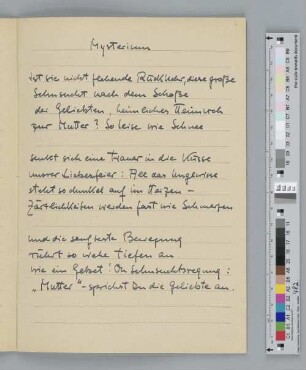 Mysterium
ist sie nicht flehende Rückkehr, diese große
Sehnsucht nach dem Schoße
der Geliebten, heimliches Heimweh
zur Mutter? So leise wie Schnee
senkt sich eine Trauer in die Küsse
unsrer Liebesfeier: All das Ungewisse
steht so dunkel auf im Herzen –
Zärtlichkeiten werden fast wie Schmerzen
und die sanfteste Bewegung
rührt so wehe Tiefen an
wie ein Gebet! Oh Sehnsuchtsregung:
„Mutter“ – sprichst Du die Geliebte an.